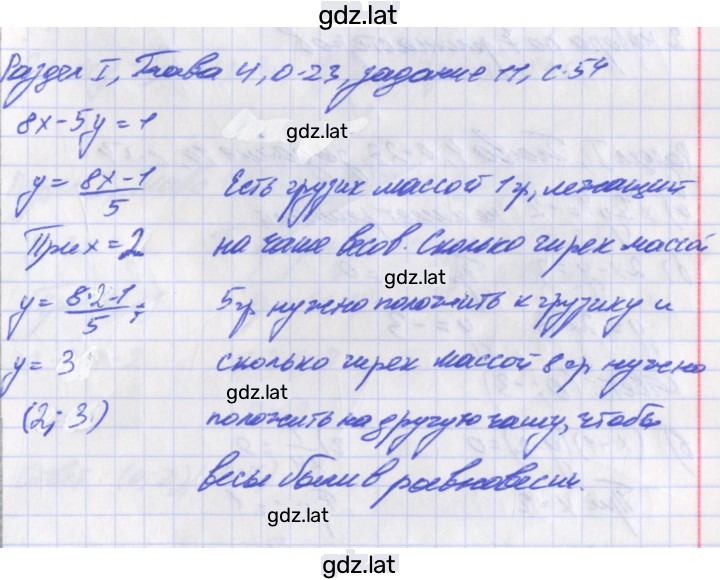 gdz.lat
Раздел I, Глава 4, О-23, задание 11, с. 54
8x-5y=1
gdz.lat
y = (8x-1)/5 Есть грузик массой 1 гр, лежащий
При x = 2 на чаше весов. Сколько гирек массой
gdz.lat
y = (8·2-1)/5; 5 гр нужно положить к грузику и
y = 3 сколько гирек массой 8 гр нужно
gdz.lat
(2; 3) положить на другую чашу, чтобы
весы были в равновесии.
gdz.lat
gdz.lat